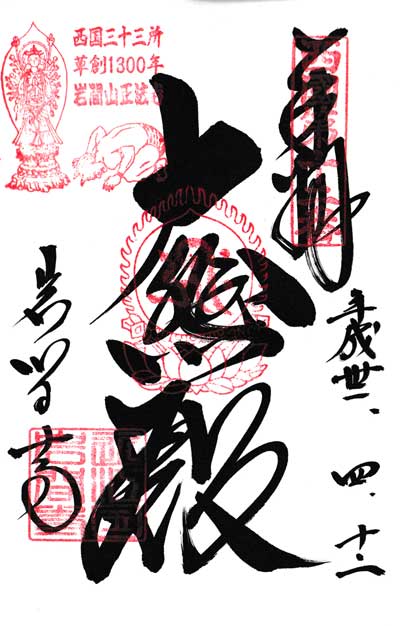 奉拝
平成卅一、四、十二
大悲殿
岩間寺
西国三十三所
草創1300年
岩間山正法寺